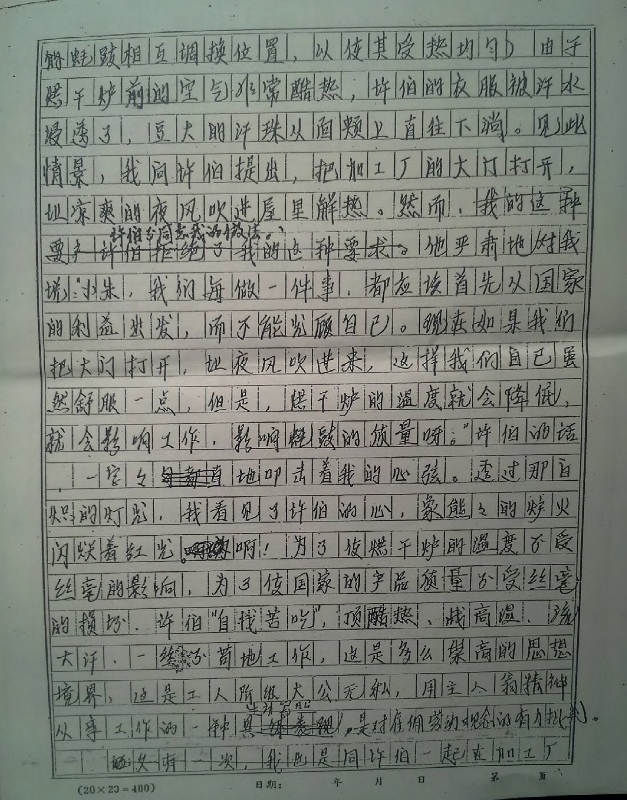 蚝豉相互调换位置，以使其受热均匀）由于
烘干炉前的空气非常酷热，许伯的衣服被汗水
浸透了，豆大的汗珠从面颊上直往下淌。见此
情景，我向许伯提出，把加工厂的大门打开，
让凉爽的夜风吹进屋里解热。然而，我的这种
许伯不同意我的做法。
要求许伯拒绝了我的这种要求。他严肃地对我
说："小朱，我们每做一件事，都应该首先从国家
的利益出发，而不能光顾自己。现在如果我们
把大门打开，让夜风吹进来，这样我们自己虽
然舒服一点，但是，烘干炉的温度就会降低，
就会影响工作，影响蚝豉的质量呀。"许伯的话
，一字々地叩击着我的心弦。透过那白
炽的灯光，我看见了许伯的心，象熊々的炉火
闪烁着红光。啊！为了使烘干炉的温度不受
丝毫的影响，为了使国家的产品质量不受丝毫
的损坏，许伯"自找苦吃"，顶酷热、战高温、流
大汗、一丝不苟地工作，这是多么崇高的思想
境界，这是工人阶级大公无私，用主人翁精神
从事工作的一种具，是对雇佣劳动观念的有力批判。
又有一次，我也是同许伯一起在加工厂
(20×20=400)
日期： 年 月 日 第 页